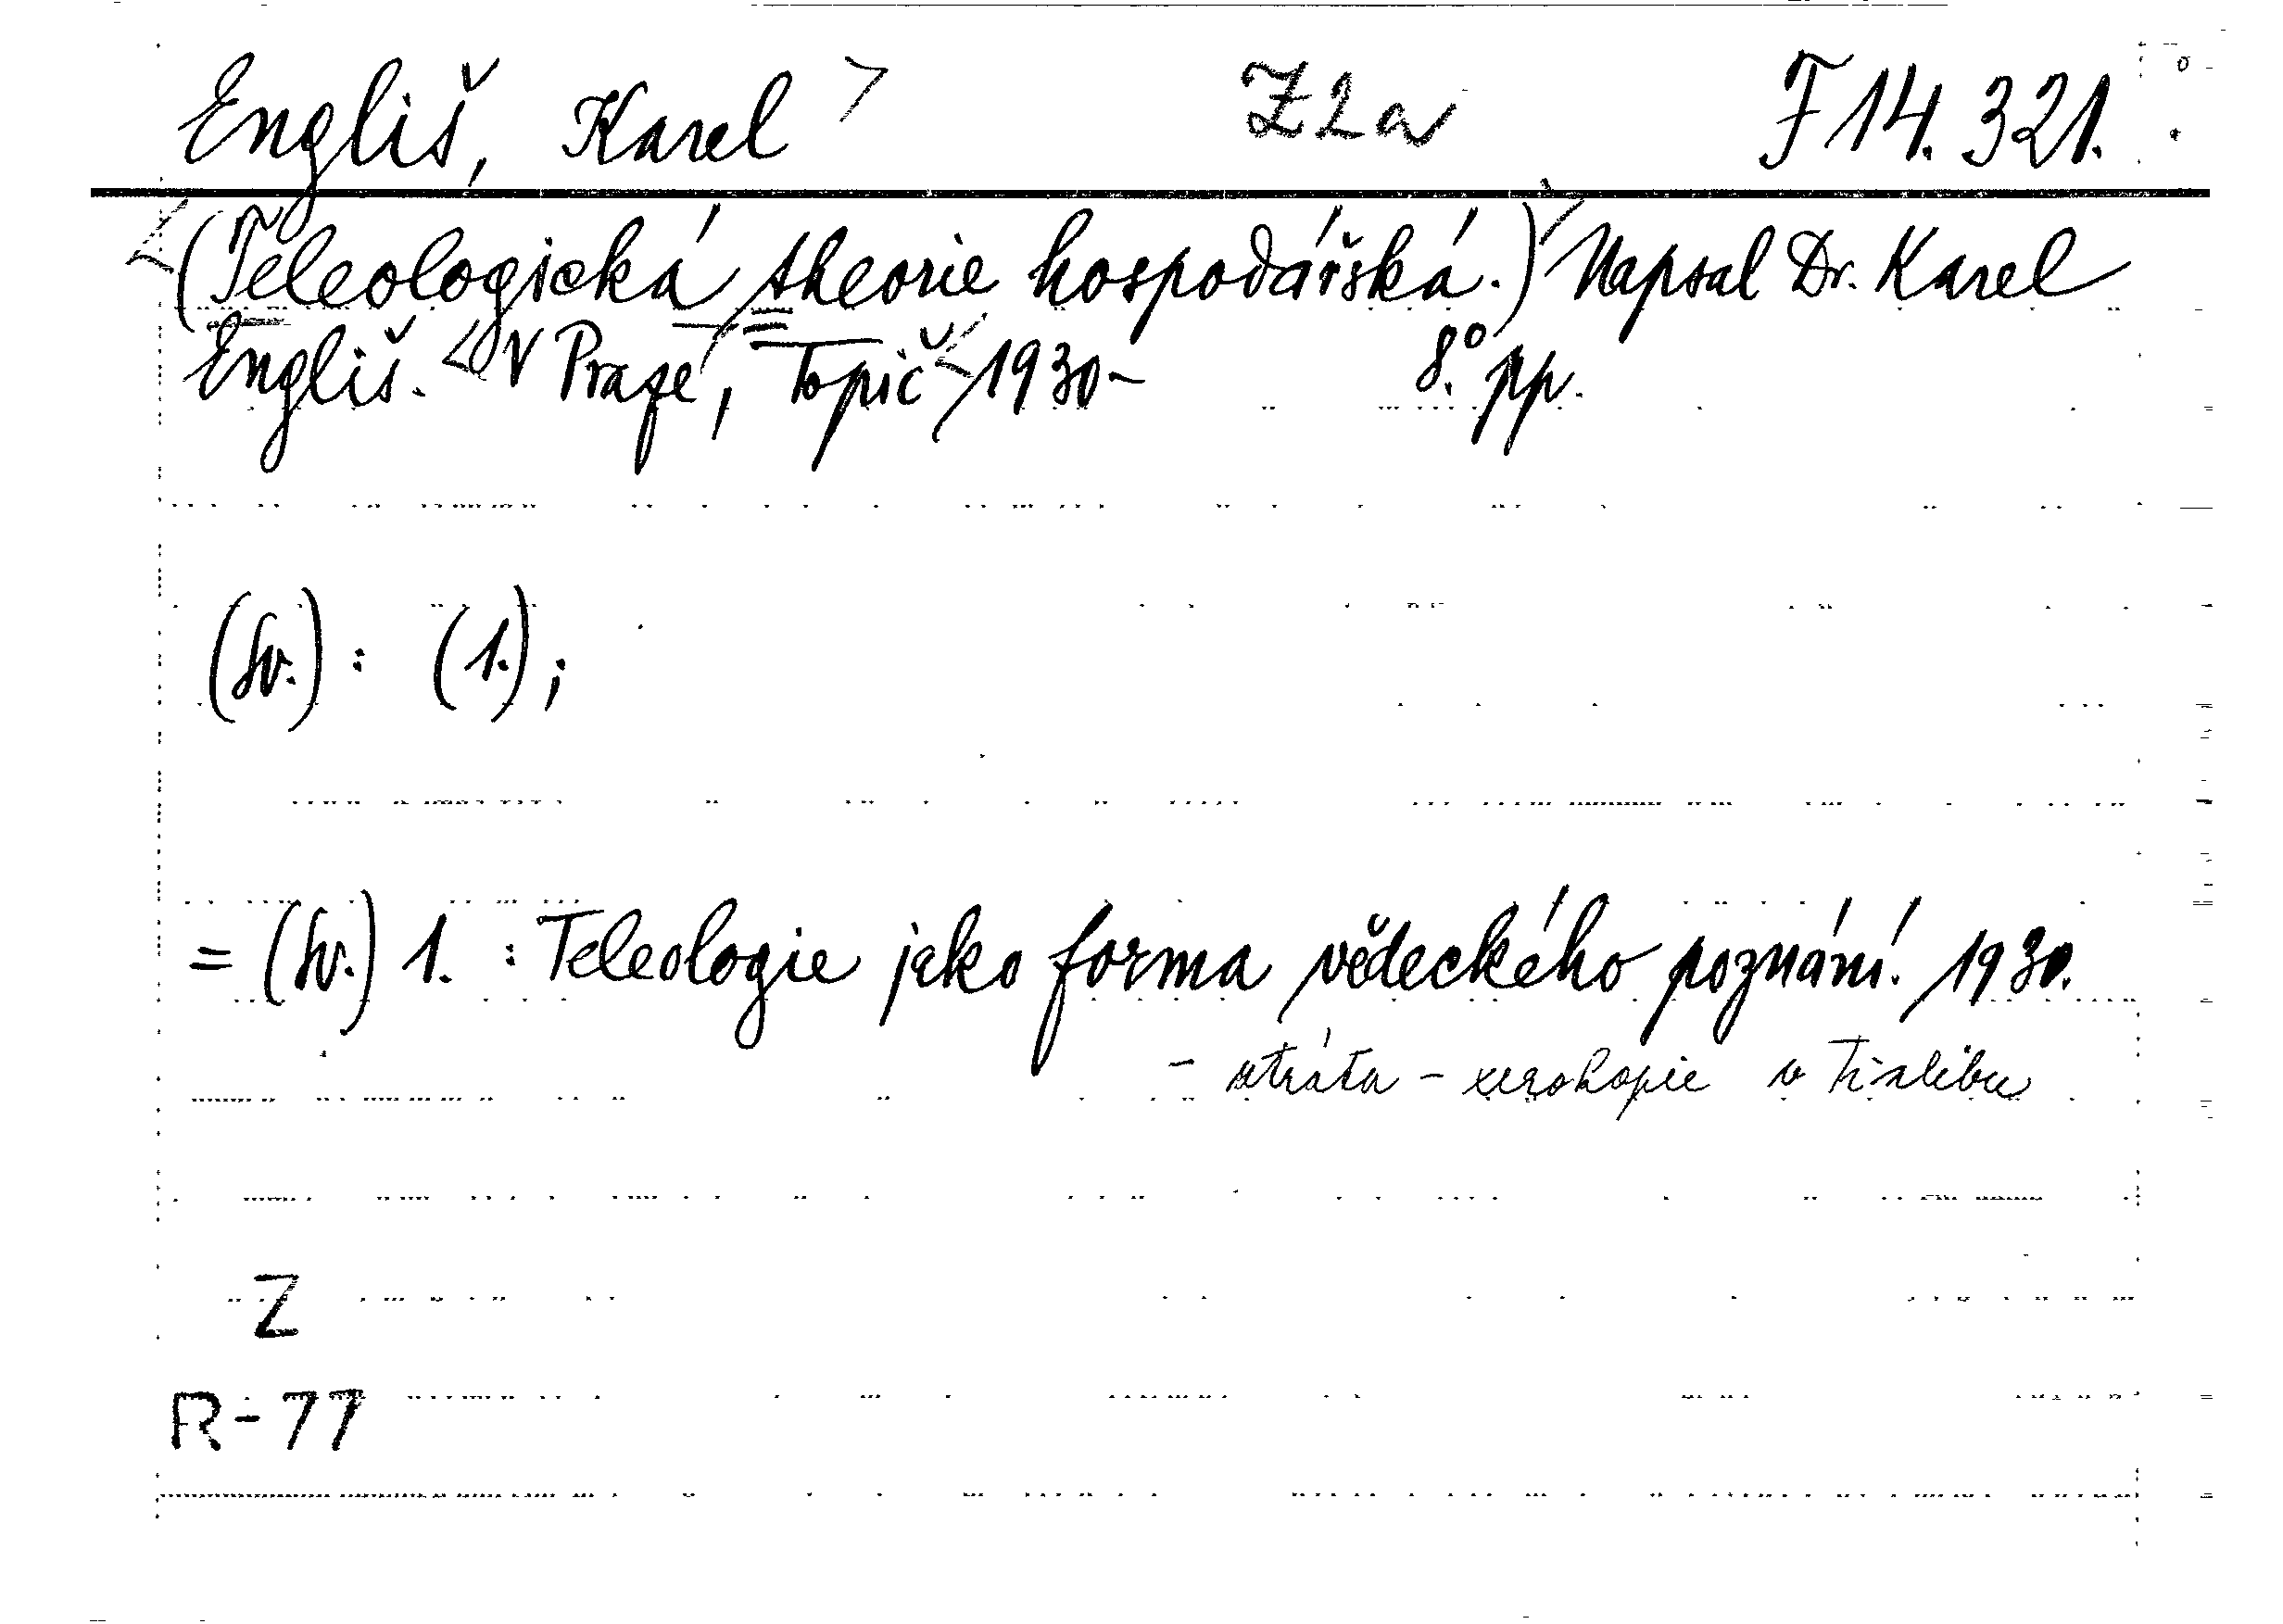 Engliš, Karel Z2a F 14.321.
(Teleologická theorie hospodářská.) Napsal Dr. Karel
Engliš. V Praze, Topič 1930- 8.° pp.
(Sv.): (1.);
= (Sv.) 1. : Teleologie jako forma vědeckého poznání. 1930.
- ztráta - xerokopie v
Z
R-77